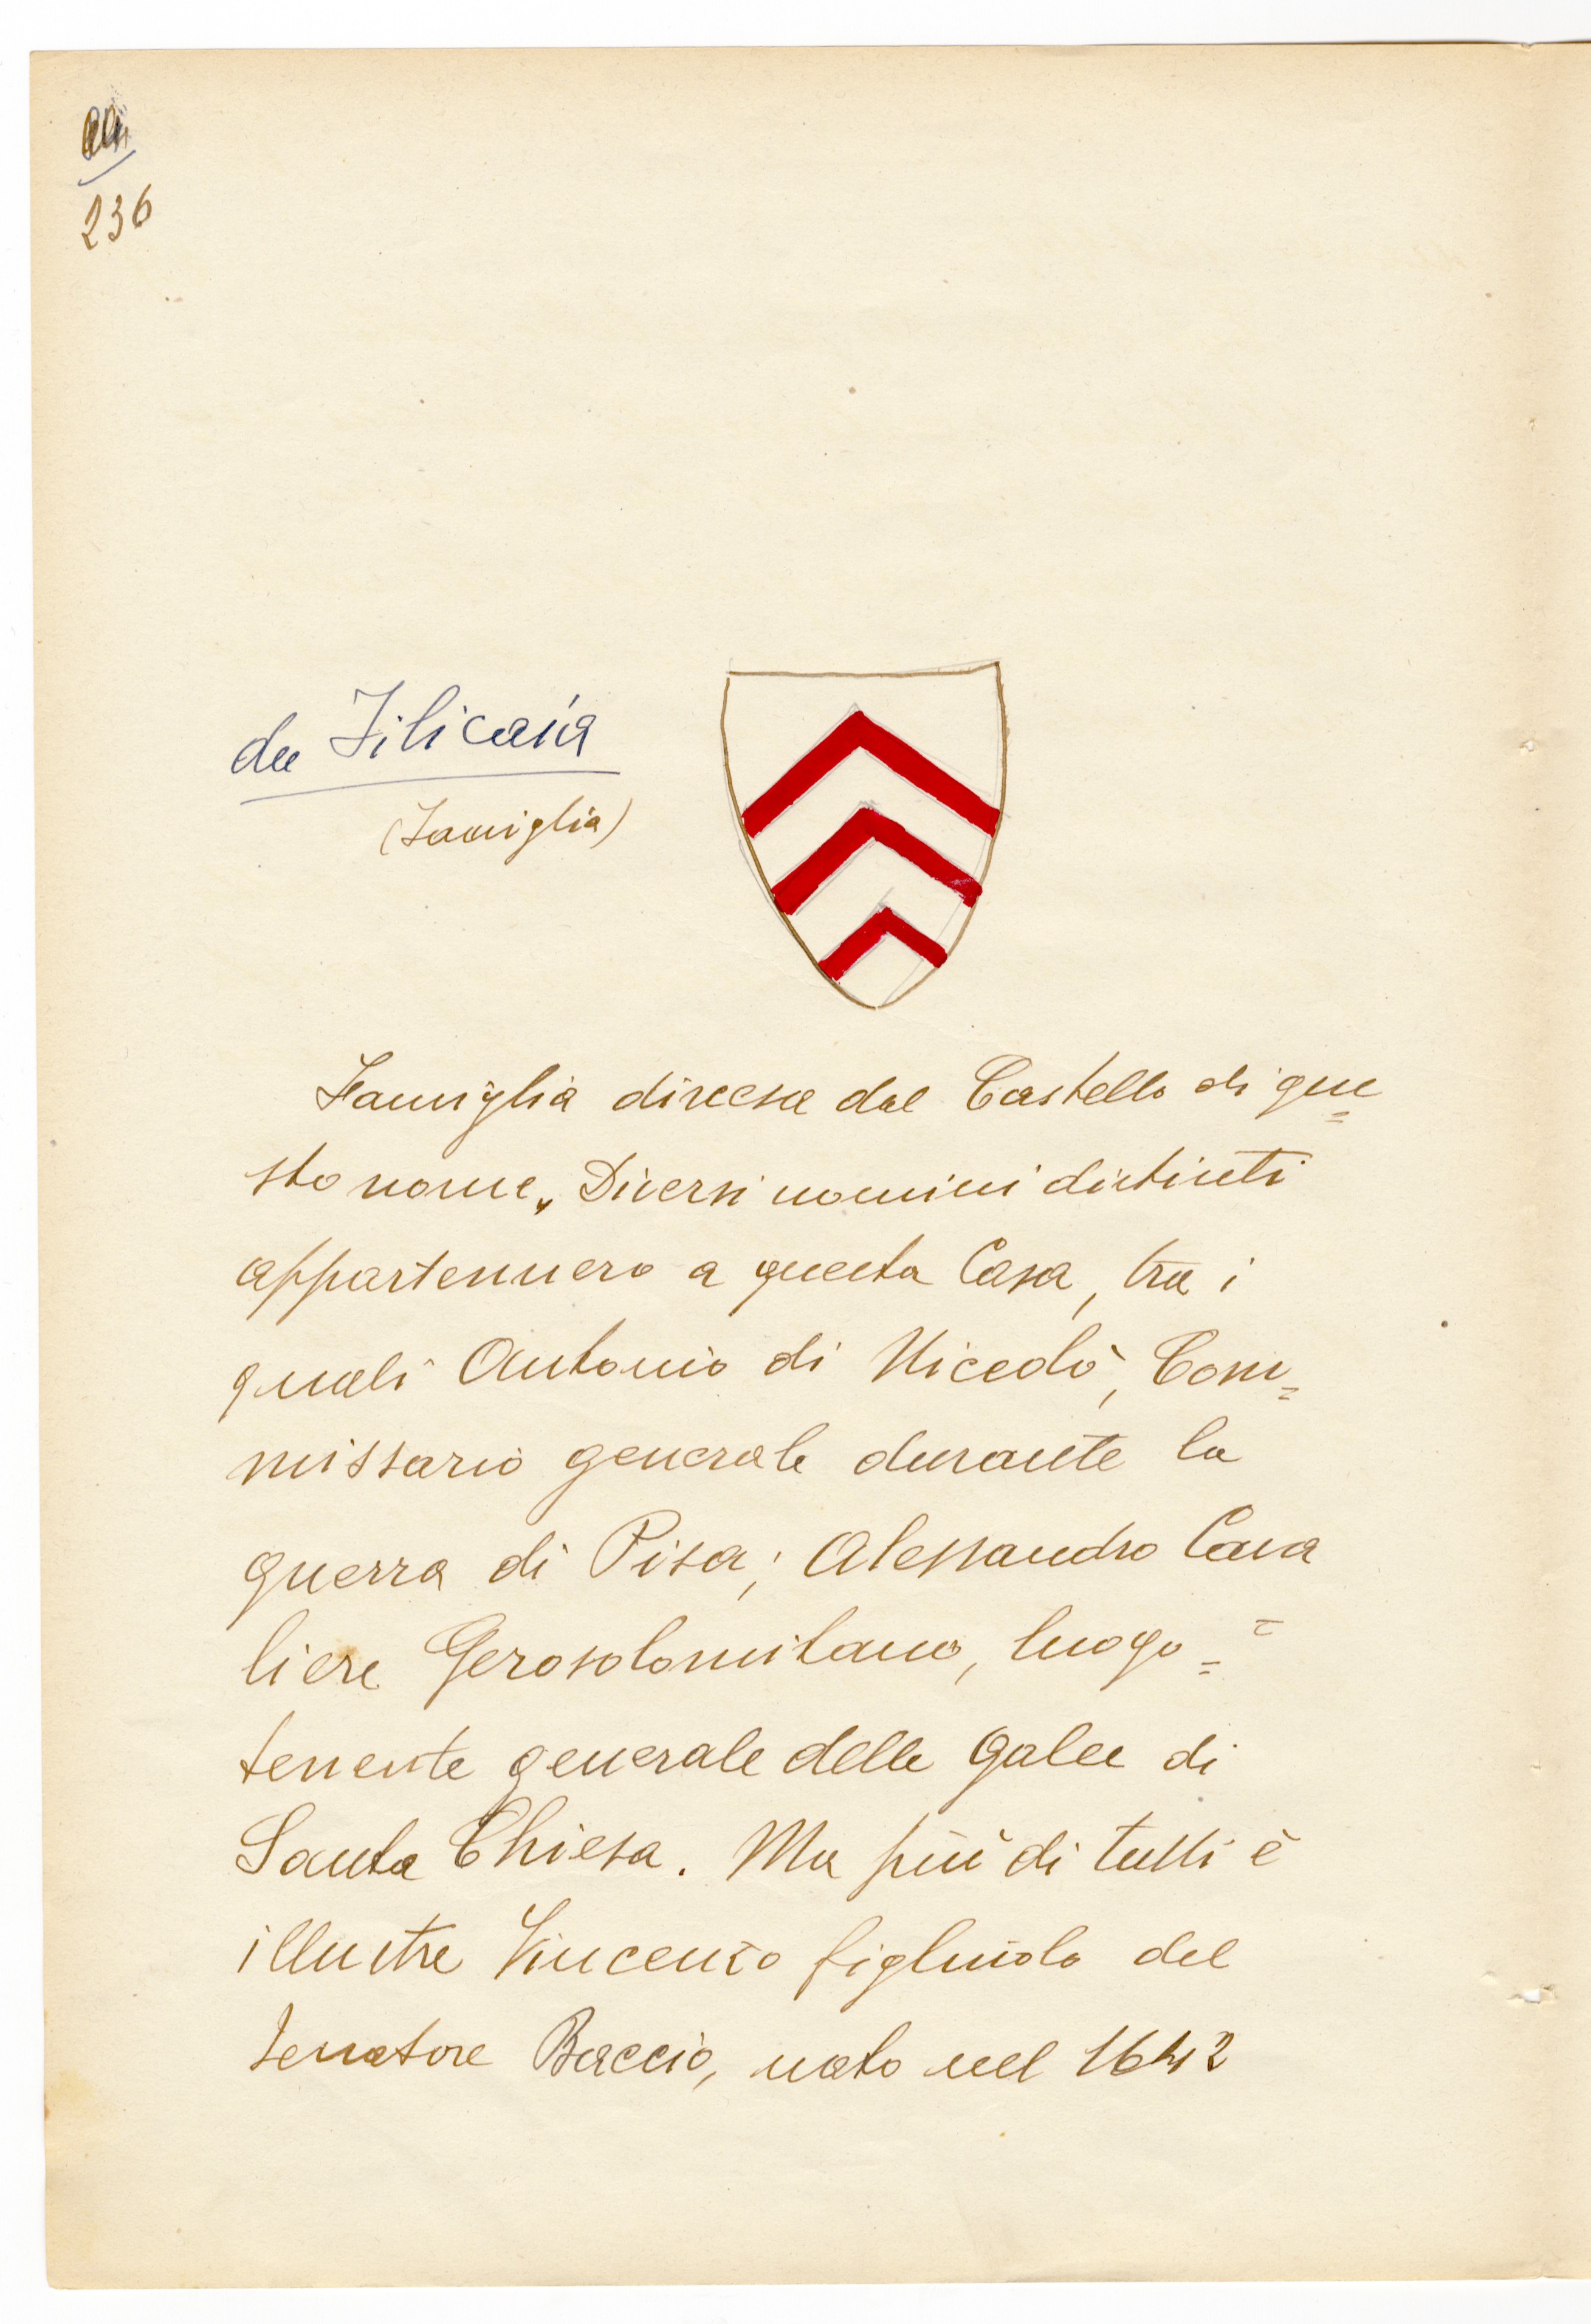 236
da Filicaia
(Famiglia)
Famiglia discesa dal Castello di que=
sto nome. Diversi uomini distinti
appartennero a questa Casa, tra i
quali Antonio di Niccolò, Com=
missario generale durante la
guerra di Pisa; Alessandro Cava=
liere Gerosolomitano, luogo=
tenente generale delle galee di
Santa Chiesa. Ma più di tutti è
illustre Vincenzo figliuolo del
senatore Baccio, nato nel 1642